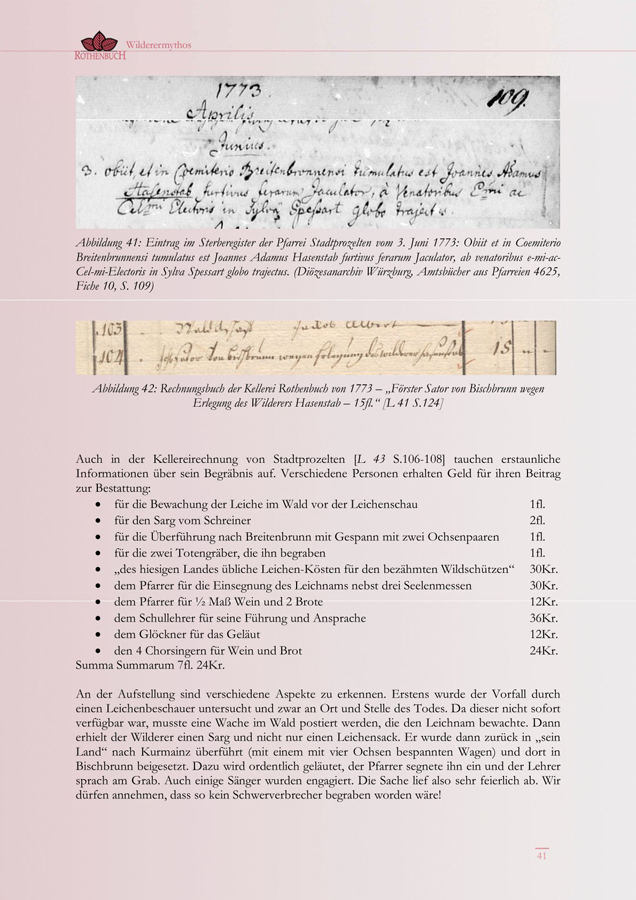 Wilderermythos
ROTHENBUCH
1773
109.
Aprilis
Junius.
3. obiit, et in Coemiterio Breitenbronnensi tumulatus est Joannes Adamus
Hasenstab furtivus ferarum Jaculator, à Venatoribus Emi ac
Celmi Electoris in Sylva Spessart globo trajectus.
Abbildung 41: Eintrag im Sterberegister der Pfarrei Stadtprozelten vom 3. Juni 1773: Obiit et in Coemiterio
Breitenbrunnensi tumulatus est Joannes Adamus Hasenstab furtivus ferarum Jaculator, ab venatoribus e-mi-ac-
Cel-mi-Electoris in Sylva Spessart globo trajectus. (Diözesanarchiv Würzburg, Amtsbücher aus Pfarreien 4625,
Fiche 10, S. 109)
103 Jacob Albert
104 15
Abbildung 42: Rechnungsbuch der Kellerei Rothenbuch von 1773 – „Förster Sator von Bischbrunn wegen
Erlegung des Wilderers Hasenstab – 15fl.“ [L 41 S.124]
Auch in der Kellereirechnung von Stadtprozelten [L 43 S.106-108] tauchen erstaunliche
Informationen über sein Begräbnis auf. Verschiedene Personen erhalten Geld für ihren Beitrag
zur Bestattung:
• für die Bewachung der Leiche im Wald vor der Leichenschau 1fl.
• für den Sarg vom Schreiner 2fl.
• für die Überführung nach Breitenbrunn mit Gespann mit zwei Ochsenpaaren 1fl.
• für die zwei Totengräber, die ihn begraben 1fl.
• „des hiesigen Landes übliche Leichen-Kösten für den bezähmten Wildschützen“ 30Kr.
• dem Pfarrer für die Einsegnung des Leichnams nebst drei Seelenmessen 30Kr.
• dem Pfarrer für ½ Maß Wein und 2 Brote 12Kr.
• dem Schullehrer für seine Führung und Ansprache 36Kr.
• dem Glöckner für das Geläut 12Kr.
• den 4 Chorsingern für Wein und Brot 24Kr.
Summa Summarum 7fl. 24Kr.
An der Aufstellung sind verschiedene Aspekte zu erkennen. Erstens wurde der Vorfall durch
einen Leichenbeschauer untersucht und zwar an Ort und Stelle des Todes. Da dieser nicht sofort
verfügbar war, musste eine Wache im Wald postiert werden, die den Leichnam bewachte. Dann
erhielt der Wilderer einen Sarg und nicht nur einen Leichensack. Er wurde dann zurück in „sein
Land“ nach Kurmainz überführt (mit einem mit vier Ochsen bespannten Wagen) und dort in
Bischbrunn beigesetzt. Dazu wird ordentlich geläutet, der Pfarrer segnete ihn ein und der Lehrer
sprach am Grab. Auch einige Sänger wurden engagiert. Die Sache lief also sehr feierlich ab. Wir
dürfen annehmen, dass so kein Schwerverbrecher begraben worden wäre!
41